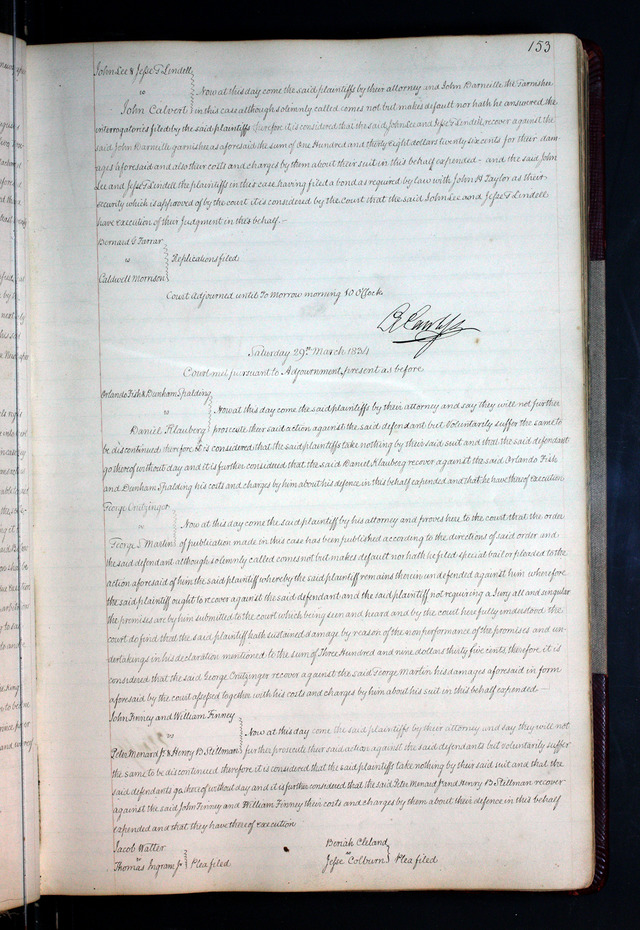 153
John Lee & Jesse G Lindell
vs
Now at this day come the said plaintiffs by their attorney and John Darneille the Garnishee
John Calvert in this case although solemnly called comes not but makes default nor hath he answered the
interrogatories filed by the said plaintiffs therefore it is considered that the said John Lee and Jesse G Lindell recover against the
said John Darneille garnishee as aforesaid the sum of One Hundred and thirty eight dollars twenty six cents for their dam-
ages aforesaid and also their costs and charges by them about their suit in this behalf expended - and the said John
Lee and Jesse G Lindell the plaintiffs in their case having filed a bond as required by law with John H Taylor as their
security which is approved of by the court it is considered by the Court that the said John Lee and Jesse G Lindell
have execution of their Judgment in this behalf -
Bernard G Farrar
vs
Replications filed
Caldwell Morrison
Court Adjourned until To Morrow morning 10 OClock
Saturday 29th March 1834
Court met pursuant to Adjournment present as before
Orlando Fish & Dunham Spalding
vs
Now at this day come the said plaintiffs by their attorney and say they will not further
Daniel Klauberg prosecute their said action against the said defendant but voluntarily suffer the same to
be discontinued therefore it is considered that the said plaintiffs take nothing by their said suit and that the said defendant
go thereof without day and it is further considered that the said Daniel Klauberg recover against the said Orlando Fish
and Dunham Spalding his costs and charges by him about his defence in this behalf expended and that he have thereof execution
George Cnitzinger
vs
Now at this day come the said plaintiff by his attorney and proves here to the court that the order
George S Martin of publication made in this case has been published according to the directions of said order and
the said defendant although solemnly called comes not but makes default nor hath he filed special bail or pleaded to the
action aforesaid of him the said plaintiff whereby the said plaintiff remains therein undefended against him wherefore
the said plaintiff ought to recover against the said defendant and the said plaintiff not requiring a Jury all and singular
the premises are by him submitted to the court which being seen and heard and by the court here fully understood the
court do find that the said plaintiff hath sustained damage by reason of the non performance of the promises and un-
dertakings in his declaration mentioned to the sum of Three Hundred and nine dollars thirty five cents therefore it is
considered that the said George Cnitzinger recover against the said George Martin his damages aforesaid in form
aforesaid by the court assessed together with his costs and charges by him about his suit in this behalf expended -
John Finney and William Finney
vs
Now at this day come the said plaintiffs by their attorney and say they will not
Peter Menard Jr & Henry B Stillman further prosecute their said action against the said defendants but voluntarily suffer
the same to be discontinued therefore it is considered that the said plaintiffs take nothing by their said suit and that the
said defendants go hereof without day and it is further considered that the said Peter Menard Jr and Henry B Stillman recover
against the said John Finney and William Finney their costs and charges by them about their defence in this behalf
expended and that they have thereof execution
Jacob Walter
vs
Thomas Ingram Jr Plea filed
Beriah Cleland
vs
Jesse Colburn Plea filed